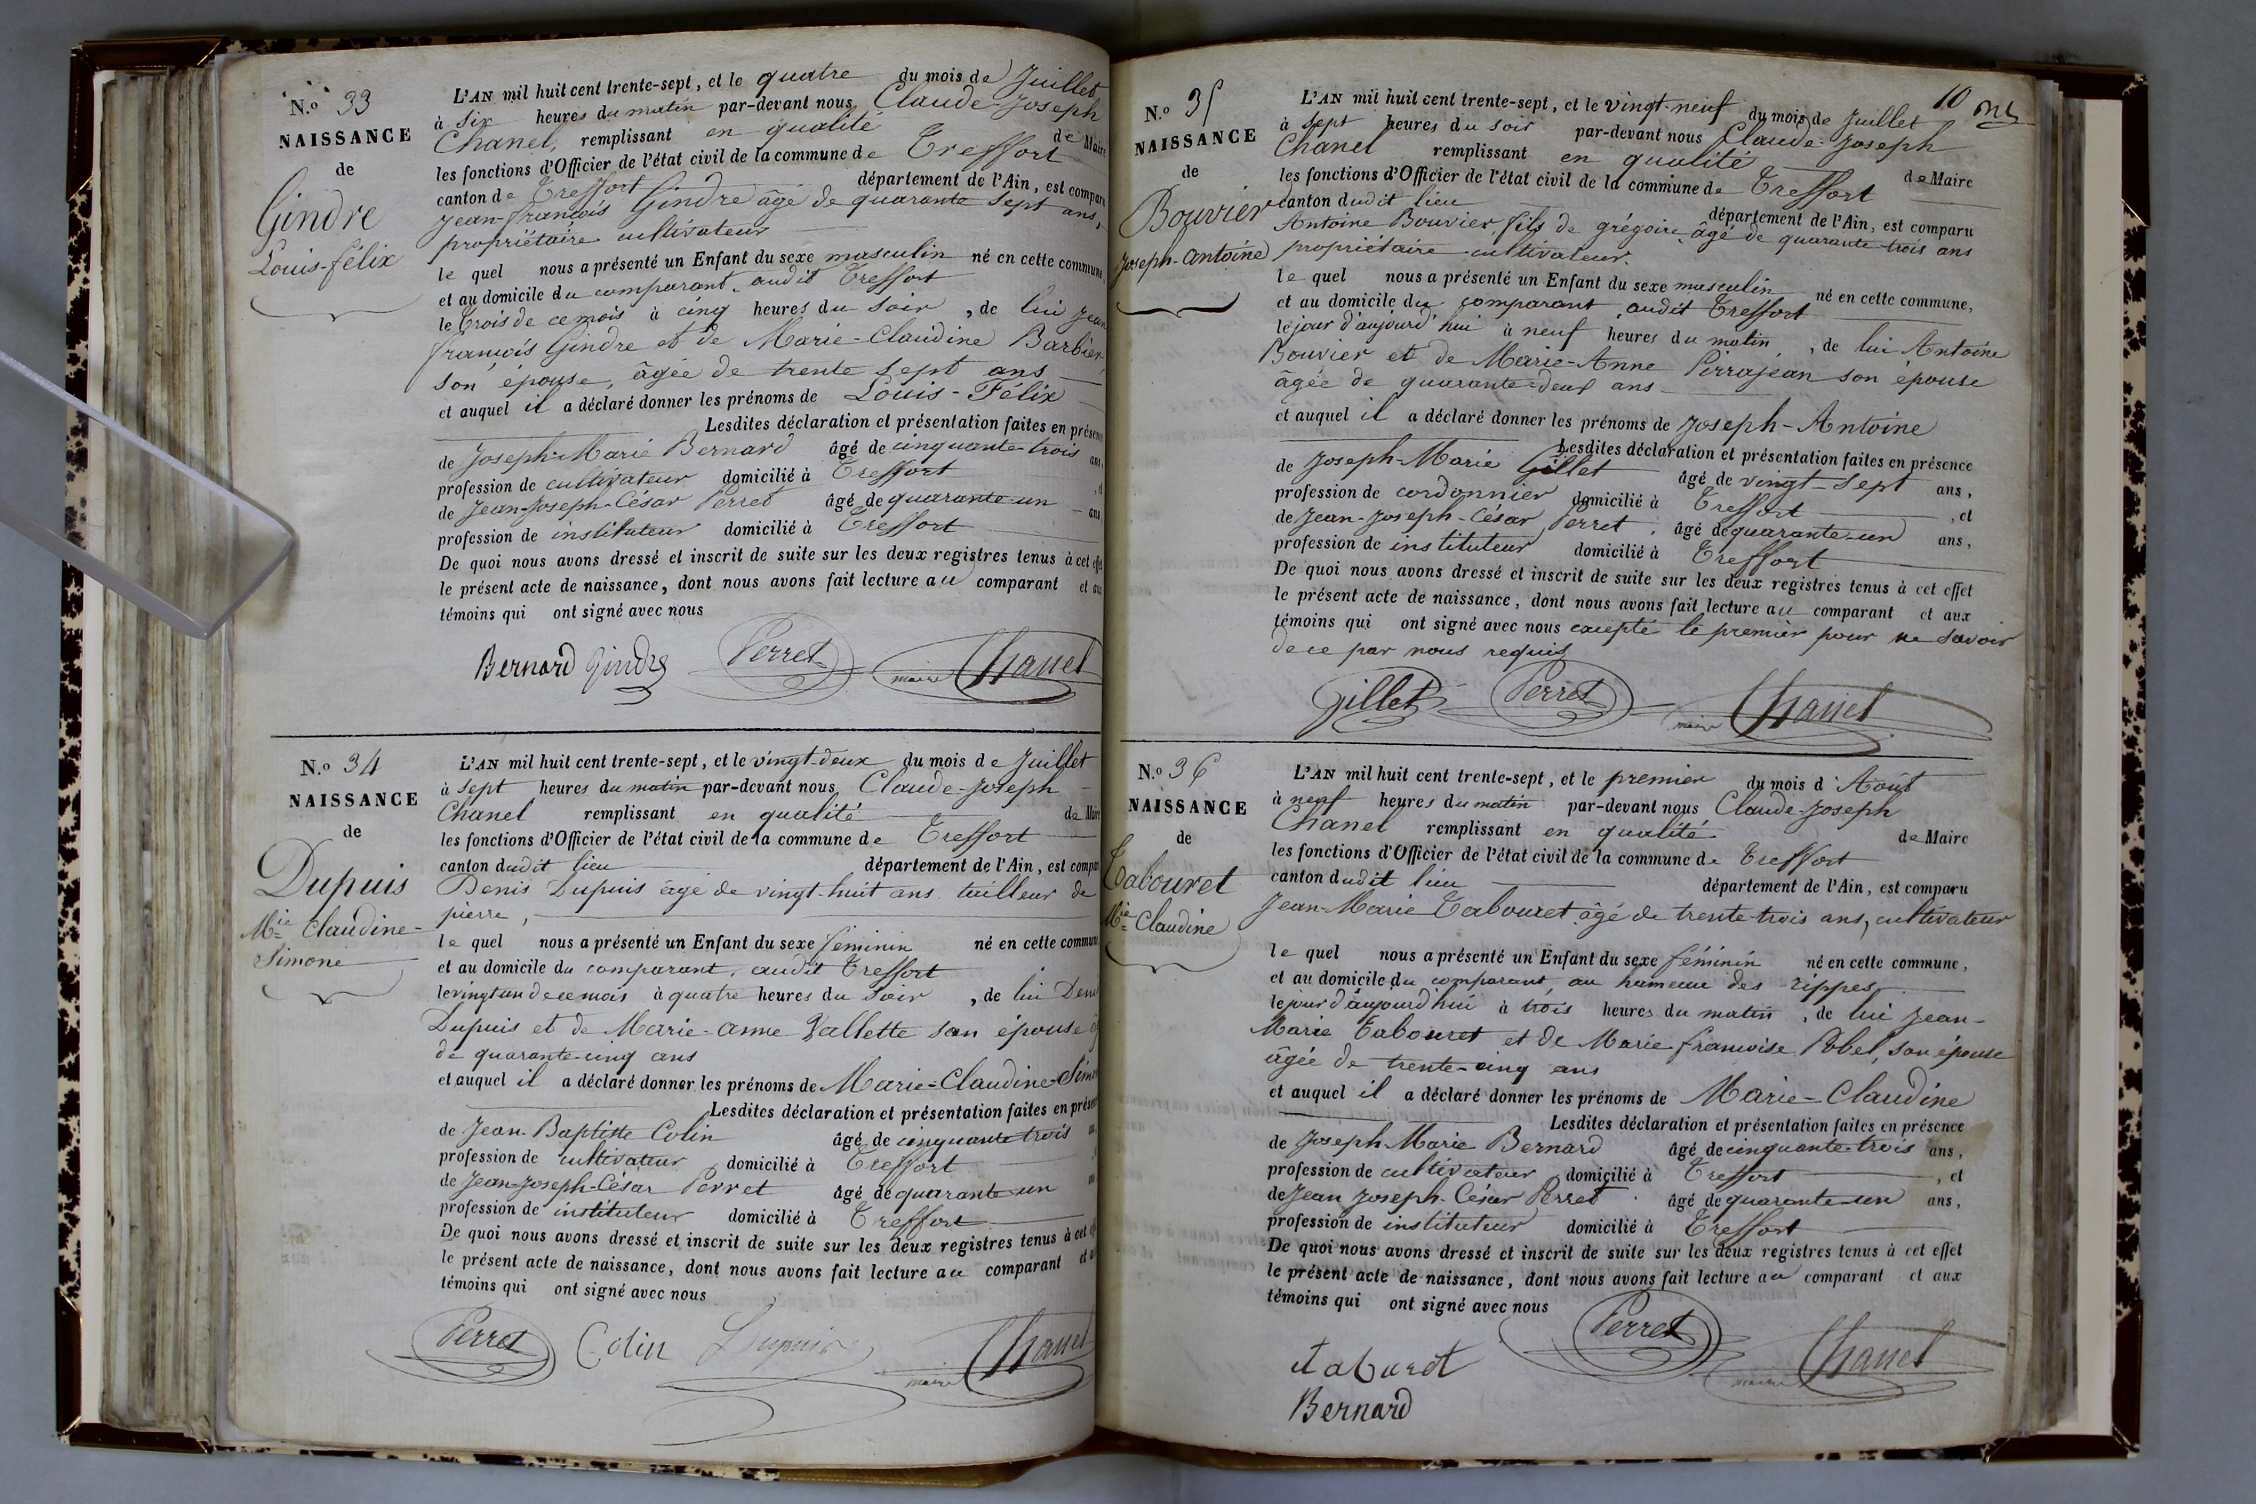 N.o 33
NAISSANCE
de
Gindre
Louis-félix
L'AN mil huit cent trente-sept, et le quatre du mois de Juillet
à six heures du matin par-devant nous Claude-Joseph
Chanel, remplissant en qualité de Maire
les fonctions d'Officier de l'état civil de la commune de Treffort
canton de Treffort département de l'Ain, est comparu
Jean-françois Gindre âgé de quarante sept ans,
propriétaire cultivateur
le quel nous a présenté un Enfant du sexe masculin né en cette commune
et au domicile du comparant, audit Treffort
le trois de ce mois à cinq heures du soir, de lui Jean
françois Gindre et de Marie-Claudine Barbier,
son épouse, âgée de trente sept ans
et auquel il a déclaré donner les prénoms de Louis-Félix
Lesdites déclaration et présentation faites en présence
de Joseph-Marie Bernard âgé de cinquante-trois ans,
profession de cultivateur domicilié à Treffort, et
de Jean-Joseph-César Perret âgé de quarante-un ans
profession de instituteur domicilié à Treffort
De quoi nous avons dressé et inscrit de suite sur les deux registres tenus à cet effet
le présent acte de naissance, dont nous avons fait lecture au comparant et aux
témoins qui ont signé avec nous
Bernard Gindre Perret maire Chanel
N.o 34
NAISSANCE
de
Dupuis
Mie Claudine-
Simone
L'AN mil huit cent trente-sept, et le vingt-deux du mois de Juillet
à sept heures du matin par-devant nous Claude-Joseph
Chanel remplissant en qualité de Maire
les fonctions d'Officier de l'état civil de la commune de Treffort
canton dudit lieu département de l'Ain, est comparu
Denis Dupuis âgé de vingt-huit ans tailleur de
pierre,
le quel nous a présenté un Enfant du sexe féminin né en cette commune
et au domicile du comparant, audit Treffort
le vingt un de ce mois à quatre heures du soir, de lui Denis
Dupuis et de Marie-anne Vallette son épouse
de quarante-cinq ans
et auquel il a déclaré donner les prénoms de Marie-Claudine-Simone
Lesdites déclaration et présentation faites en présence
de Jean-Baptiste Colin âgé de cinquante trois
profession de cultivateur domicilié à Treffort
de Jean-Joseph-César Perret âgé de quarante-un
profession de instituteur domicilié à Treffort
De quoi nous avons dressé et inscrit de suite sur les deux registres tenus à cet
le présent acte de naissance, dont nous avons fait lecture au comparant et
témoins qui ont signé avec nous
Perret Colin Dupuis maire Chanel
10
N.o 35
NAISSANCE
de
Bouvier
Joseph-antoine
L'AN mil huit cent trente-sept, et le vingt-neuf du mois de Juillet
à sept heures du soir par-devant nous Claude-Joseph
Chanel remplissant en qualité de Maire
les fonctions d'Officier de l'état civil de la commune de Treffort
canton dudit lieu département de l'Ain, est comparu
Antoine Bouvier fils de grégoire, âgé de quarante-trois ans
propriétaire-cultivateur.
le quel nous a présenté un Enfant du sexe masculin né en cette commune,
et au domicile du comparant audit Treffort
le jour d'aujourd'hui à neuf heures du matin, de lui Antoine
Bouvier et de Marie-Anne Pirrajean son épouse
âgée de quarante-deux ans
et auquel il a déclaré donner les prénoms de Joseph-Antoine
Lesdites déclaration et présentation faites en présence
de Joseph-Marie Gillet âgé de vingt-sept ans,
profession de cordonnier domicilié à Treffort, et
de Jean-Joseph-César Perret, âgé de quarante-un ans,
profession de instituteur domicilié à Treffort
De quoi nous avons dressé et inscrit de suite sur les deux registres tenus à cet effet
le présent acte de naissance, dont nous avons fait lecture au comparant et aux
témoins qui ont signé avec nous excepté le premier pour ne savoir
de ce par nous requis
Gillet Perret maire Chanel
N.o 36
NAISSANCE
de
Tabouret
Mie Claudine
L'AN mil huit cent trente-sept, et le premier du mois d'Août
à neuf heures du matin par-devant nous Claude-Joseph
Chanel remplissant en qualité de Maire
les fonctions d'Officier de l'état civil de la commune de Treffort
canton dudit lieu département de l'Ain, est comparu
Jean-Marie Tabouret âgé de trente-trois ans, cultivateur
le quel nous a présenté un Enfant du sexe féminin né en cette commune,
et au domicile du comparant, au hameau des rippes
le jour d'aujourd'hui à trois heures du matin, de lui Jean-
Marie Tabouret et de Marie françoise Pobel, son épouse
âgée de trente-cinq ans
et auquel il a déclaré donner les prénoms de Marie-Claudine
Lesdites déclaration et présentation faites en présence
de Joseph-Marie Bernard âgé de cinquante-trois ans,
profession de cultivateur domicilié à Treffort, et
de Jean Joseph-César Perret âgé de quarante-un ans,
profession de instituteur domicilié à Treffort
De quoi nous avons dressé et inscrit de suite sur les deux registres tenus à cet effet
le présent acte de naissance, dont nous avons fait lecture au comparant et aux
témoins qui ont signé avec nous
Perret
maire Chanel
Bernard